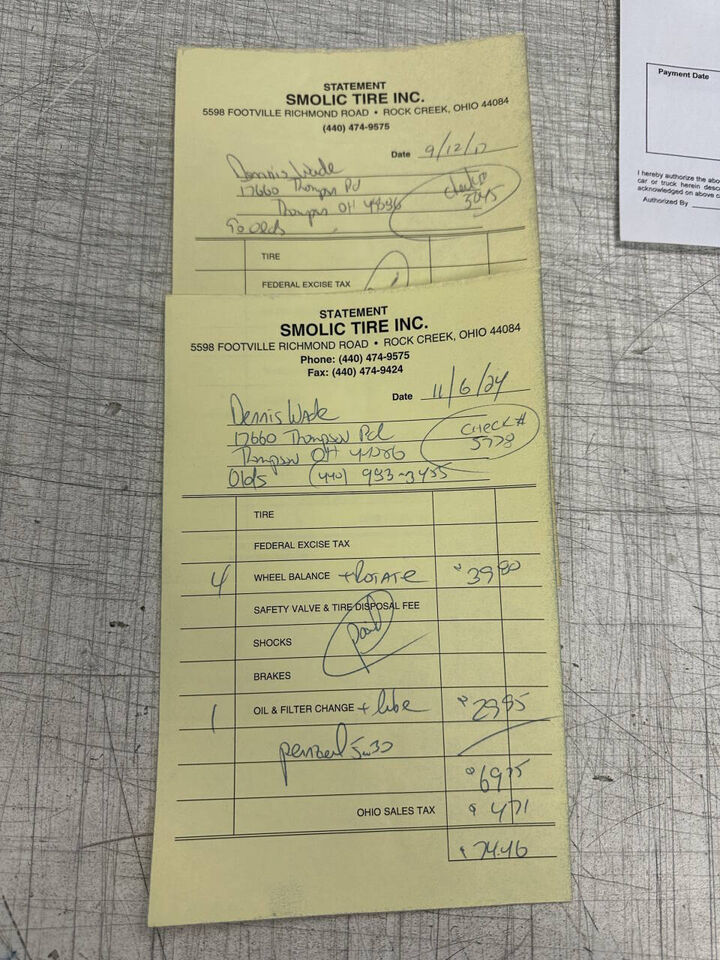 STATEMENT
SMOLIC TIRE INC.
5598 FOOTVILLE RICHMOND ROAD • ROCK CREEK, OHIO 44084
(440) 474-9575
Date 9/12/17
Dennis Wade
17660 Thompson Rd check#
Thompson OH 3045
Olds
TIRE
FEDERAL EXCISE TAX
STATEMENT
SMOLIC TIRE INC.
5598 FOOTVILLE RICHMOND ROAD • ROCK CREEK, OHIO 44084
Phone: (440) 474-9575
Fax: (440) 474-9424
Date 11/6/24
Dennis Wade
17660 Thompson Rd CHECK#
Thompson OH 44086 5778
Olds (440)
TIRE
FEDERAL EXCISE TAX
4 WHEEL BALANCE + ROTATE $39.80
SAFETY VALVE & TIRE DISPOSAL FEE
Paid
SHOCKS
BRAKES
1 OIL & FILTER CHANGE + lube $29.95
pennzoil 5w30
$69.75
OHIO SALES TAX $4.71
$74.46
Payment Date
I hereby authorize the
car or truck herein
acknowledged on above
Authorized By